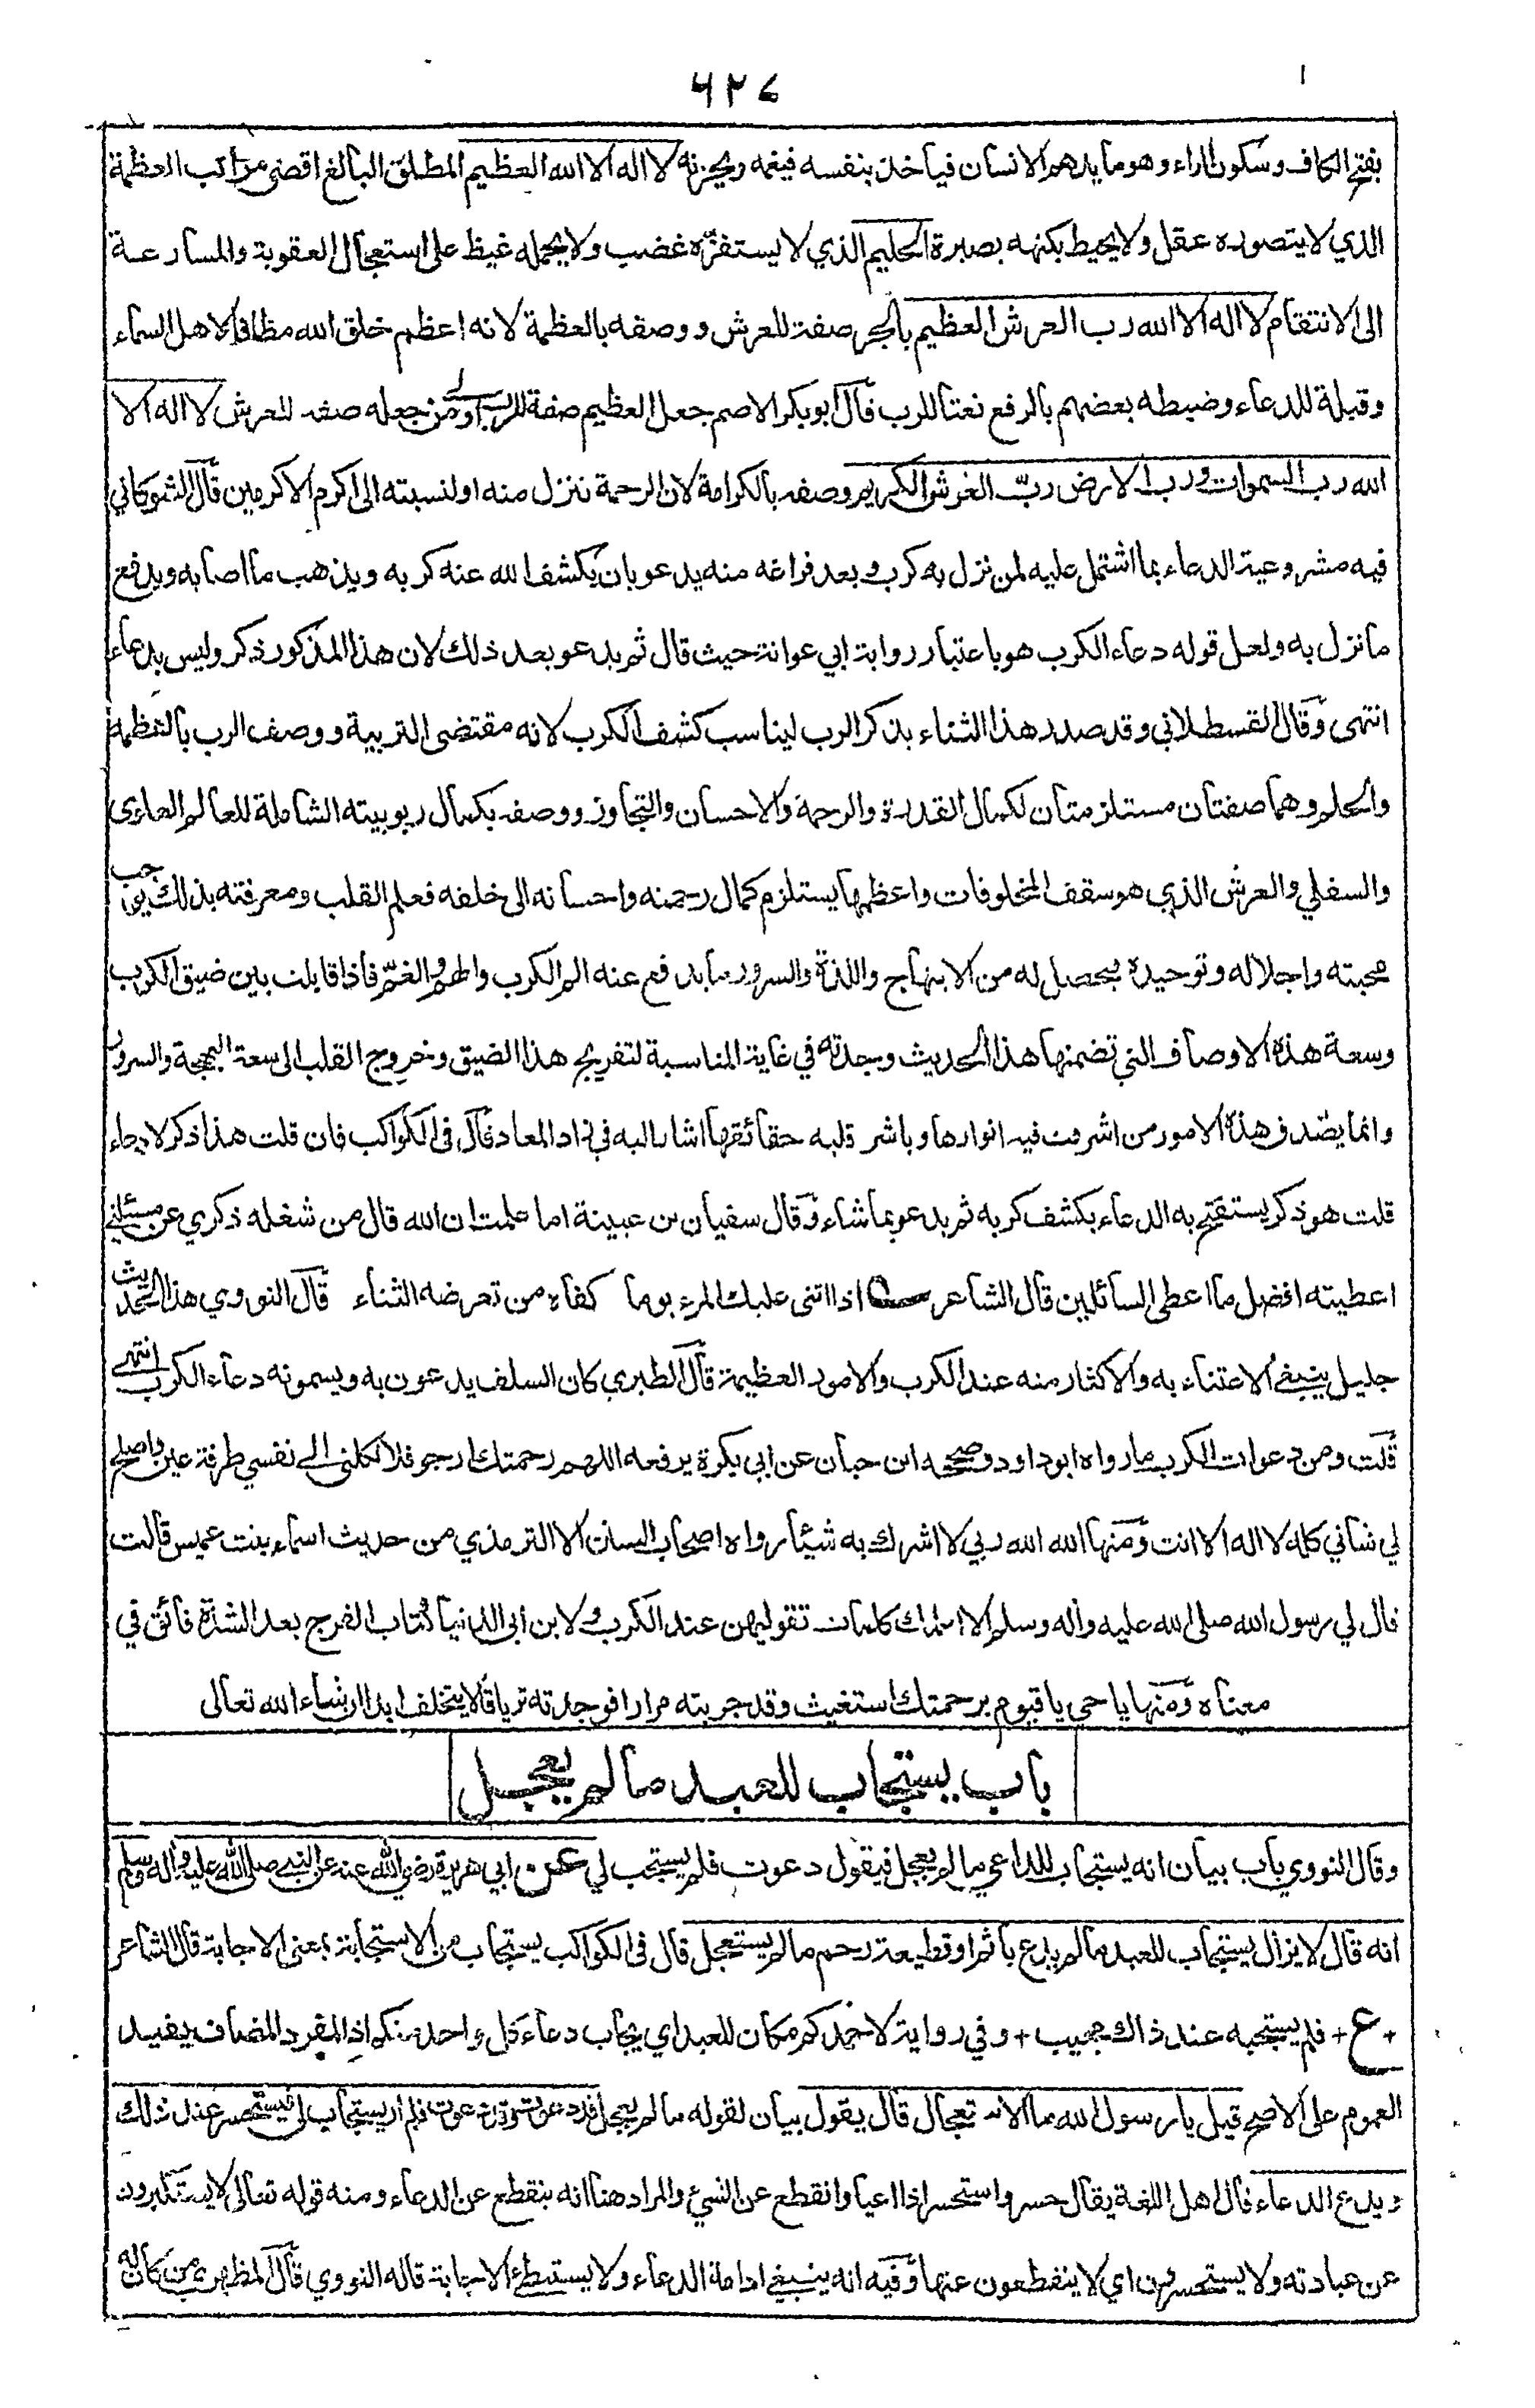 ٦٢٧
بفتح الكاف وسكون الراء وهو ما يدهم الانسان فياخذ بنفسه فيغمه ويحزنه لا اله الا الله العظيم المطلق البالغ اقصى مراتب العظمة
الذي لا يتصوره عقل ولا يحيط بكنهه بصيرة الحليم الذي لا يستفزه غضب ولا يحمله غيظ على استعجال العقوبة والمسارعة
الى الانتقام لا اله الا الله رب العرش العظيم بالجر صفة للعرش ووصفه بالعظمة لانه اعظم خلق الله مطافا لاهل السماء
وقبلة للدعاء وضبطه بعضهم بالرفع نعتا للرب قال ابو بكر الاصم جعل العظيم صفة للرب اولى من جعله صفة للعرش لا اله الا
الله رب السموات ورب الارض ربّ العرش الكريم وصفه بالكرامة لان الرحمة تنزل منه او لنسبته الى اكرم الاكرمين قال الشوكاني
فيه مشروعية الدعاء بما اشتمل عليه لمن نزل به كرب وبعد فراغه منه يدعو بان يكشف الله عنه كربه ويذهب ما اصابه ويدفع
ما نزل به ولعل قوله دعاء الكرب هو باعتبار رواية ابي عوانة حيث قال ثم يدعو بعد ذلك لان هذا المذكور ذكر وليس بدعاء
انتهى وقال القسطلاني وقد صدر هذا الثناء بذكر الرب ليناسب كشف الكرب لانه مقتضى التربية ووصف الرب بالعظمة
والحلم وهما صفتان مستلزمتان لكمال القدرة والرحمة والاحسان والتجاوز ووصفه بكمال ربوبيته الشاملة للعالم العلوي
والسفلي والعرش الذي هو سقف المخلوقات واعظمها يستلزم كمال رحمته واحسانه الى خلقه فعلم القلب ومعرفته بذلك يوجب
محبته واجلاله وتوحيده فيحصل له من الابتهاج واللذة والسرور ما يدفع عنه الم الكرب والهم والغمّ فاذا قابلت بين ضيق الكرب
وسعة هذه الاوصاف التي تضمنها هذا الحديث وجدته في غاية المناسبة لتفريج هذا الضيق وخروج القلب الى سعة البهجة والسرور
وانما يصدق هذه الامور من اشرقت فيه انوارها وباشر قلبه حقائقها اشار اليه في زاد المعاد قال في الكواكب فان قلت هذا ذكر لا دعاء
قلت هو ذكر يستفتح به الدعاء بكشف كربه ثم يدعو بما شاء وقال سفيان بن عيينة اما علمت ان الله قال من شغله ذكري عن مسئلتي
اعطيته افضل ما اعطى السائلين قال الشاعر اذا اثنى عليك المرء يوما كفاه من تعرضه الثناء قال النووي هذا الحديث
جليل ينبغي الاعتناء به والاكثار منه عند الكرب والامور العظيمة قال الطبري كان السلف يدعون به ويسمونه دعاء الكرب انتهى
قلت ومن دعوات الكرب ما رواه ابو داود وصححه ابن حبان عن ابي بكرة يرفعه اللهم رحمتك ارجو فلا تكلني الى نفسي طرفة عين واصلح
لي شاني كله لا اله الا انت ومنها الله الله ربي لا اشرك به شيئا رواه اصحاب السنن الا الترمذي من حديث اسماء بنت عميس قالت
قال لي رسول الله صلى الله عليه واله وسلم الا اعلمك كلمات تقوليهن عند الكرب ولابن ابي الدنيا كتاب الفرج بعد الشدة فائق في
معناه ومنها يا حي يا قيوم برحمتك استغيث وقد جربته مرارا فوجدته ترياقا لا يتخلف ابدا ان شاء الله تعالى
باب يستجاب للعبد ما لم يعجل
وقال النووي باب بيان انه يستجاب للداعي ما لم يعجل فيقول دعوت فلم يستجب لي عن ابي هريرة رضي الله عنه عن النبي صلى الله عليه واله وسلم
انه قال لا يزال يستجاب للعبد ما لم يدع باثم او قطيعة رحم ما لم يستعجل قال في الكواكب يستجاب من الاستجابة بمعنى الاجابة قال الشاعر
+ ع + فلم يستجبه عند ذاك مجيب + وفي رواية لاحدكم مكان للعبد اي يجاب دعاء كل واحد منكم اذ المفرد المضاف يفيد
العموم على الاصح قيل يا رسول الله ما الاستعجال قال يقول بيان لقوله ما لم يعجل قد دعوت وقد دعوت فلم ار يستجاب لي فيستحسر عند ذلك
ويدع الدعاء قال اهل اللغة يقال حسر واستحسر اذا اعيا وانقطع عن الشيء والمراد هنا انه ينقطع عن الدعاء ومنه قوله تعالى لا يستكبرون
عن عبادته ولا يستحسرون اي لا ينقطعون عنها وفيه انه ينبغي ادامة الدعاء ولا يستبطئ الاجابة قاله النووي قال المظهري من كان له